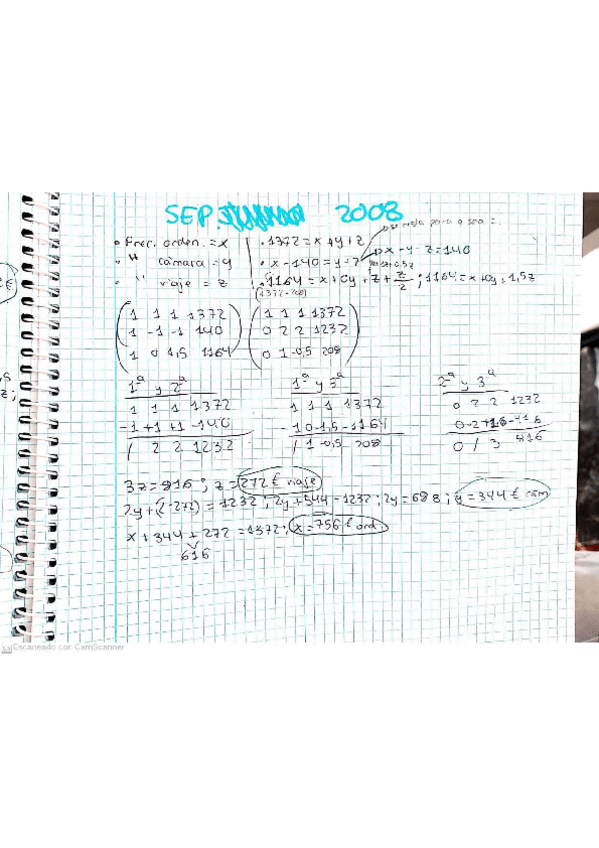 SEP. 2008
• Prec. orden. = x
" cámara = y
" viaje = z
• 1372 = x + y + z
• x - 140 = y + z
x - y - z = 140
• 1164 = x + 0y + z + z/2 ; 1164 = x + 0y + 1,5z
(1372-208)
1 1 1 1372
1 -1 -1 140
1 0 1,5 1164
1 1 1 1372
0 2 2 1232
0 1 -0,5 208
1ª y 2ª
1 1 1 1372
-1 +1 +1 -140
/ 2 2 1232
1ª y 3ª
1 1 1 1372
-1 0 -1,5 -1164
/ 1 -0,5 208
2ª y 3ª
0 2 2 1232
0 / 3 816
3z = 816 ; z = 272 € viaje
2y + (2·272) = 1232 ; 2y + 544 = 1232 ; 2y = 688 ; y = 344 € cám
x + 344 + 272 = 1372 ; x = 756 € ord
616
Escaneado con CamScanner